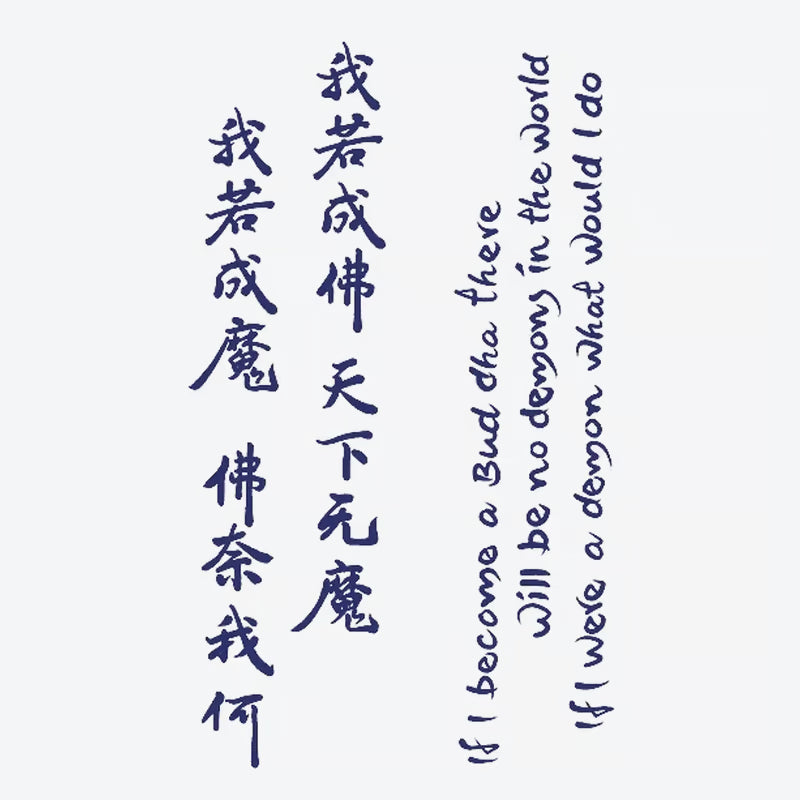 我若成佛 天下无魔
我若成魔 佛奈我何
If I become a Bud dha there
will be no demons in the world
If I were a demon what would I do